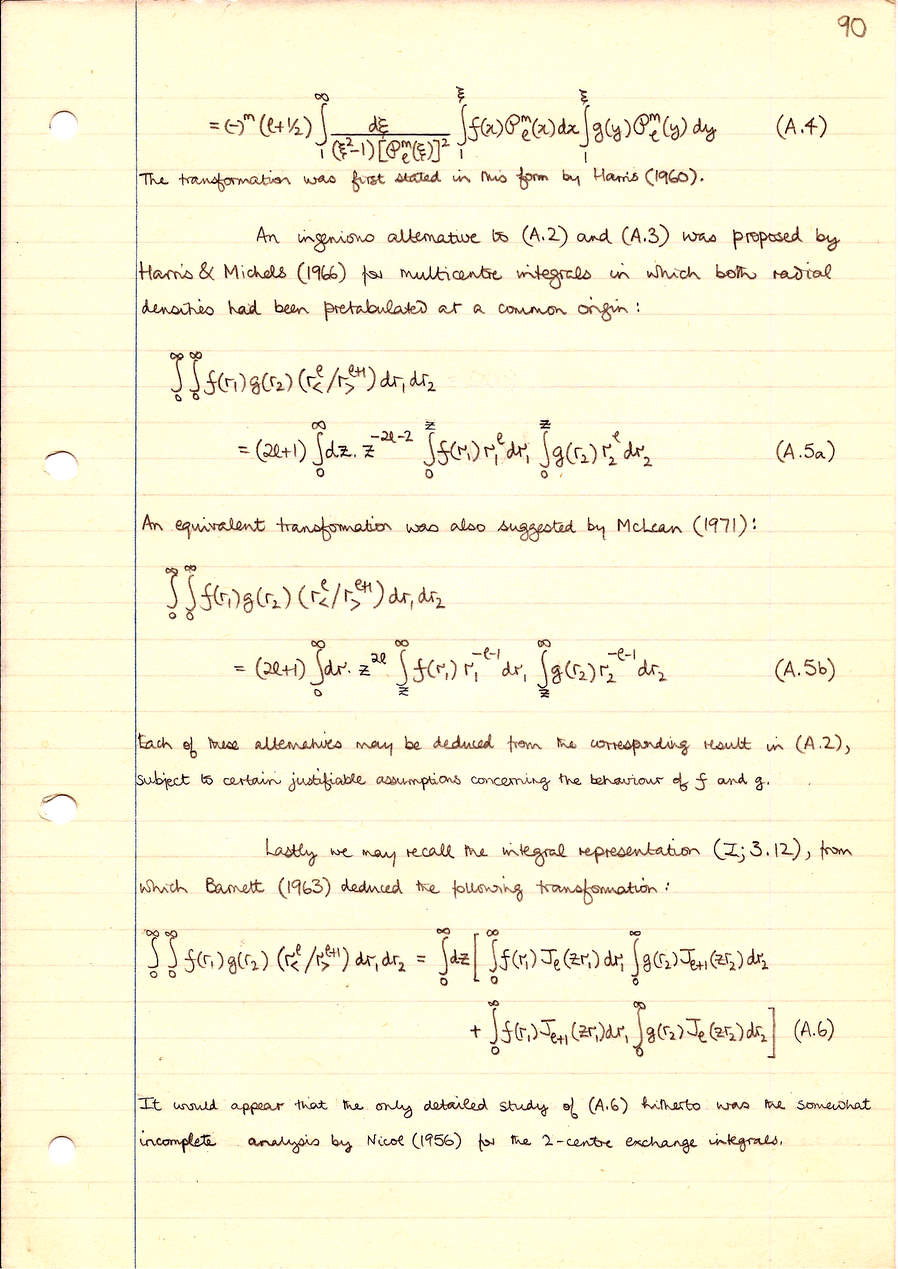 90
= (-)^m (ℓ+1/2) ∫_1^∞ dξ / ((ξ²-1) [𝒫_ℓ^m(ξ)]²) ∫_1^ξ f(x) 𝒫_ℓ^m(x) dx ∫_1^ξ g(y) 𝒫_ℓ^m(y) dy (A.4)
The transformation was first stated in this form by Harris (1960).
An ingenious alternative to (A.2) and (A.3) was proposed by
Harris & Michels (1966) for multicentre integrals in which both radial
densities had been pretabulated at a common origin :
∫_0^∞ ∫_0^∞ f(r₁) g(r₂) (r_<^ℓ / r_>^{ℓ+1}) dr₁ dr₂
= (2ℓ+1) ∫_0^∞ dz. z^{-2ℓ-2} ∫_0^z f(r₁) r₁^ℓ dr₁ ∫_0^z g(r₂) r₂^ℓ dr₂ (A.5a)
An equivalent transformation was also suggested by McLean (1971) :
∫_0^∞ ∫_0^∞ f(r₁) g(r₂) (r_<^ℓ / r_>^{ℓ+1}) dr₁ dr₂
= (2ℓ+1) ∫_0^∞ dr. z^{2ℓ} ∫_z^∞ f(r₁) r₁^{-ℓ-1} dr₁ ∫_z^∞ g(r₂) r₂^{-ℓ-1} dr₂ (A.5b)
Each of these alternatives may be deduced from the corresponding result in (A.2),
subject to certain justifiable assumptions concerning the behaviour of f and g.
Lastly we may recall the integral representation (I; 3.12), from
which Barnett (1963) deduced the following transformation :
∫_0^∞ ∫_0^∞ f(r₁) g(r₂) (r_<^ℓ / r_>^{ℓ+1}) dr₁ dr₂ = ∫_0^∞ dz [ ∫_0^∞ f(r₁) J_ℓ(zr₁) dr₁ ∫_0^∞ g(r₂) J_{ℓ+1}(zr₂) dr₂
+ ∫_0^∞ f(r₁) J_{ℓ+1}(zr₁) dr₁ ∫_0^∞ g(r₂) J_ℓ(zr₂) dr₂ ] (A.6)
It would appear that the only detailed study of (A.6) hitherto was the somewhat
incomplete analysis by Nicol (1956) for the 2-centre exchange integrals.